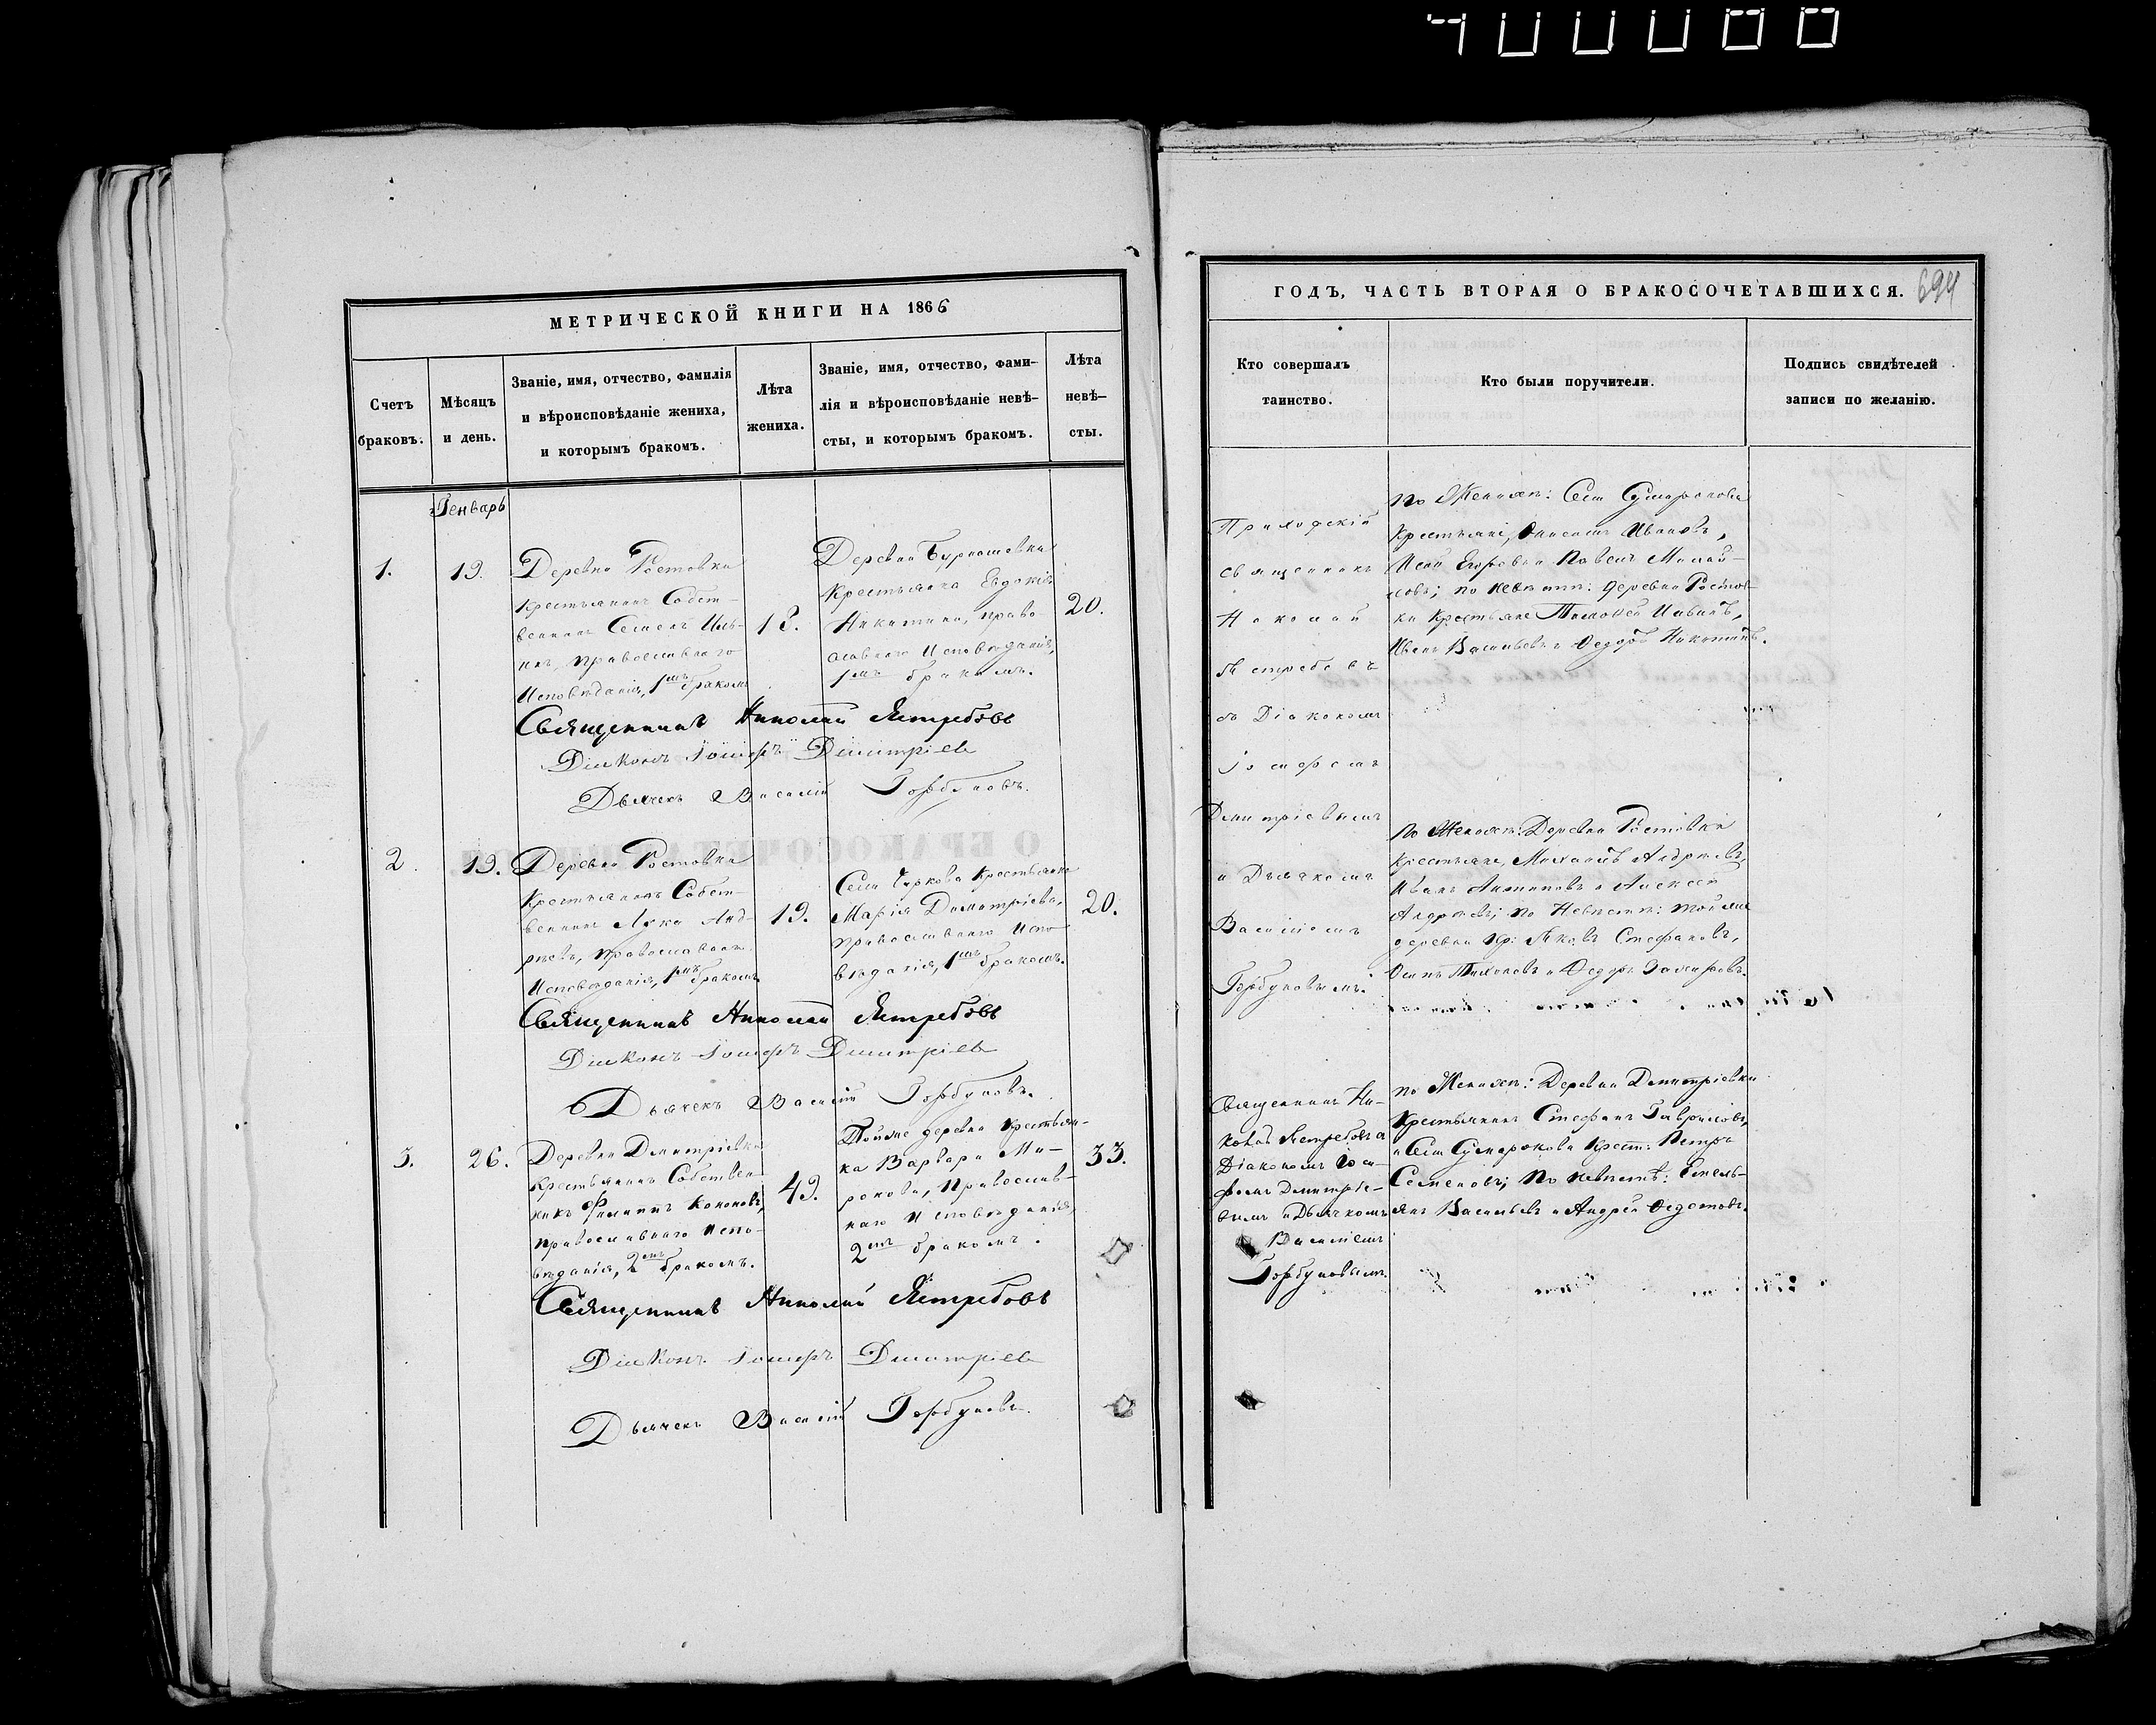 МЕТРИЧЕСКОЙ КНИГИ НА 1866
Счетъ браковъ.
Мѣсяцъ и день.
Званіе, имя, отчество, фамилія
и вѣроисповѣданіе жениха,
и которымъ бракомъ.
Лѣта жениха.
Званіе, имя, отчество, фами-
лія и вѣроисповѣданіе невѣ-
сты, и которымъ бракомъ.
Лѣта невѣ-
сты.
Генварь
1.
19.
Деревни Ростовки
Крестьянинъ Собст-
венникъ Семенъ Иль-
инъ, православнаго
Исповѣданія, 1мъ бракомъ
18.
Деревни Бурнашевки
Крестьянка Евдокія
Никитина, право-
славнаго Исповѣданія,
1мъ бракомъ.
20.
Священникъ Николай Ястребовъ
Діаконъ Іосифъ Димитріевъ
Дьячекъ Василій Горбуновъ.
2.
19.
Деревни Ростовки
Крестьянинъ Собст-
венникъ Лука Анд-
реевъ, православнаго
Исповѣданія, 1мъ бракомъ.
19.
Села Чиркова Крестьянка
Марія Димитріева,
православнаго Испо-
вѣданія, 1мъ бракомъ.
20.
Священникъ Николай Ястребовъ
Діаконъ Іосифъ Димитріевъ
Дьячекъ Василій Горбуновъ.
3.
26.
Деревни Димитріевки
Крестьянинъ Собствен-
никъ Филиппъ Кононовъ,
православнаго Испо-
вѣданія, 2мъ бракомъ.
49.
Тойже деревни Крестьян-
ка Варвара Ми-
ронова, Православ-
наго Исповѣданія,
2мъ бракомъ.
33.
Священникъ Николай Ястребовъ
Діаконъ Іосифъ Димитріевъ
Дьячекъ Василій Горбуновъ.
ГОДЪ, ЧАСТЬ ВТОРАЯ О БРАКОСОЧЕТАВШИХСЯ.
694
Кто совершалъ
таинство.
Кто были поручители.
Подпись свидѣтелей
записи по желанію.
Приходскій
священникъ
Николай
Ястребовъ
съ Діакономъ
Іосифомъ
Димитріевымъ
и Дьячкомъ
Василіемъ
Горбуновымъ.
По Женихѣ: Села Сумарокова
Крестьяне, Иванъ Ивановъ,
Егоровъ и Павелъ Михай-
ловъ; по невѣстѣ: деревни Ростов-
ки Крестьяне Тимофей Ивановъ,
Иванъ Васильевъ и Ѳедоръ Никитинъ.
По Женихѣ: Деревни Ростовки
Крестьяне, Михаилъ Андреевъ,
Иванъ Антиповъ и Алексей
Андреевъ; по Невѣстѣ: тойже
деревни Кр: Яковъ Стефановъ,
Осипъ Тихоновъ и Ѳедоръ Захаровъ.
Священникъ Ни-
колай Ястребовъ съ
Діакономъ Іоси-
фомъ Димитріе-
вымъ и Дьячкомъ
Василіемъ
Горбуновымъ.
По Женихѣ: Деревни Димитріевки
Крестьянинъ Стефанъ Гавриловъ,
и Села Сумарокова Крест: Петръ
Семеновъ; По невѣстѣ: Емель-
янъ Васильевъ и Андрей Ѳедотовъ.